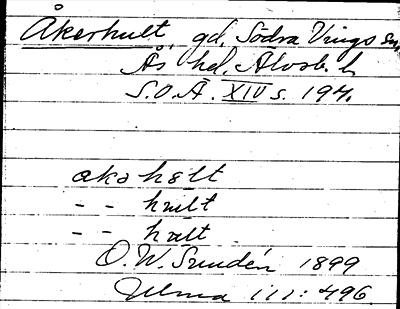 Åkerhult, gd, Södra Vings sn,
Ås hd. Älvsb. l.
S.O.Ä. XIV s. 197.
aka hölt
- - hult
- - halt
O. W. Sundén 1899
Ulma 111: 496.